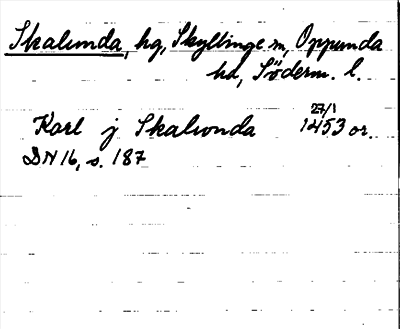 Skalunda, hg, Skyllinge sn, Oppunda
hd, Söderm. l.
27/1
Karl j Skalwnda 1453 or.
DN 16, s. 187